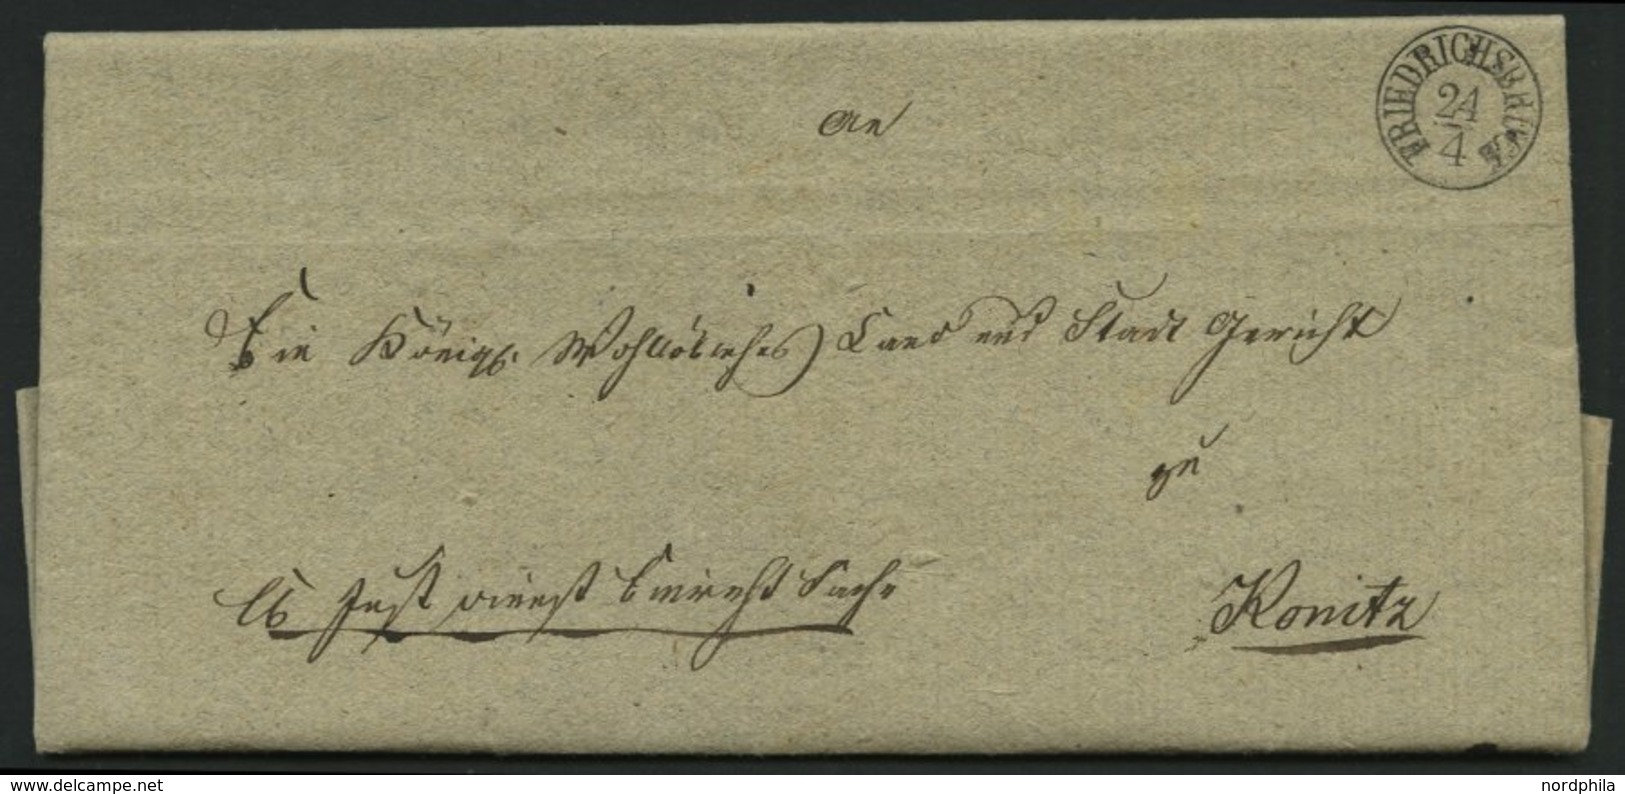 FRIEDRICHSBRUCH
24
4
An
Ein Königl. Wohllöbliches Land und Stadt Gericht
zu
Konitz
Just Sache
delcampe.net
nordphila